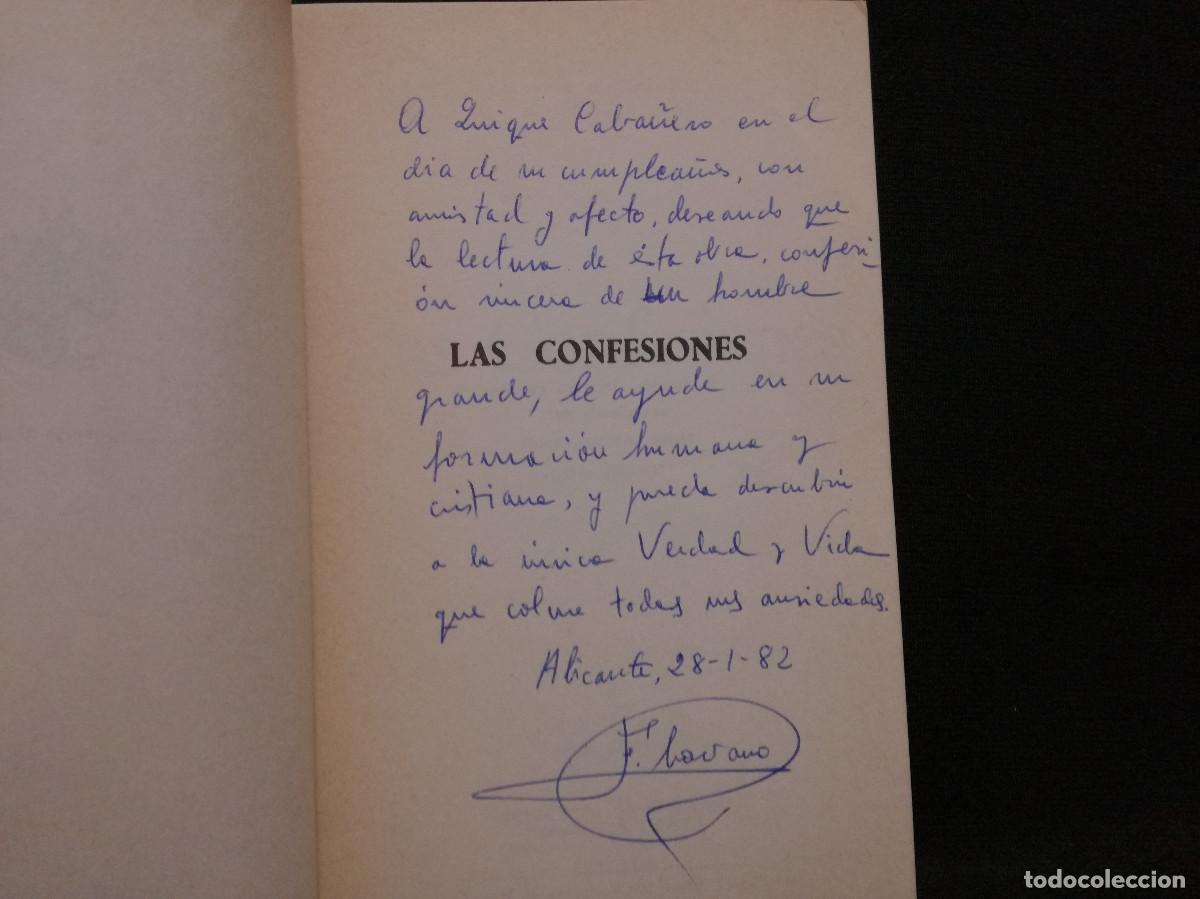 A Quique Cabañero en el
día de su cumpleaños, con
amistad y afecto, deseando que
la lectura de ésta obra, confesi-
ón sincera de un hombre
LAS CONFESIONES
grande, le ayude en su
formación humana y
cristiana, y pueda descubrir
a la única Verdad y Vida
que colme todas sus ansiedades.
Alicante, 28-1-82
F.
todocoleccion